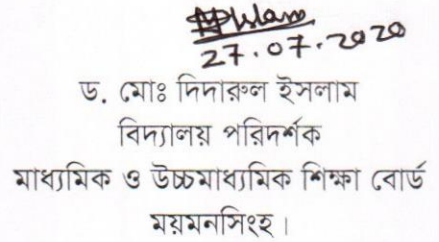 27.07.2020
ড. মোঃ দিদারুল ইসলাম
বিদ্যালয় পরিদর্শক
মাধ্যমিক ও উচ্চমাধ্যমিক শিক্ষা বোর্ড
ময়মনসিংহ।